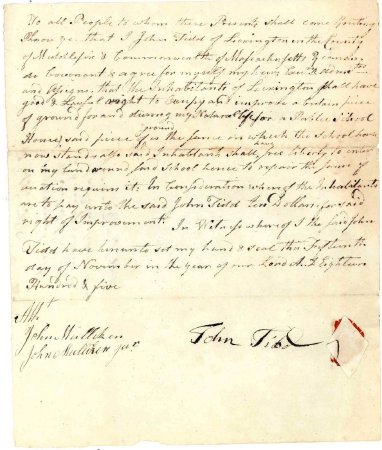 To all People to whom these Presents shall come Greeting
Know ye. that I John Tidd of Lexington in the County
of Middlesex & Commonwealth of Massachusetts Yeoman
do Covenant & agree for myself my heirs Exec.rs & Adm
and Assigns that the Inhabitants of Lexington shall have
good & lawful right to occupy and improve a certain piece
of ground for and during my Natural life for a Public School
House, said piece ground is the same on which the School house
now stands also said Inhabitants shall have free liberty to enter
on my land round said School house to repair the same if
ocation requires it. In Consideration whereof the Inhabitants
are to pay unto the said John Tidd Ten Dollars for said
right of Improvement. In Witness whereof I the said John
Tidd have hereunto set my hand & seal this Fifteenth
day of November in the year of our Lord A. D Eighteen
Hundred & five
Att
John Mulliken
John Mulliken jun.r
John Tidd